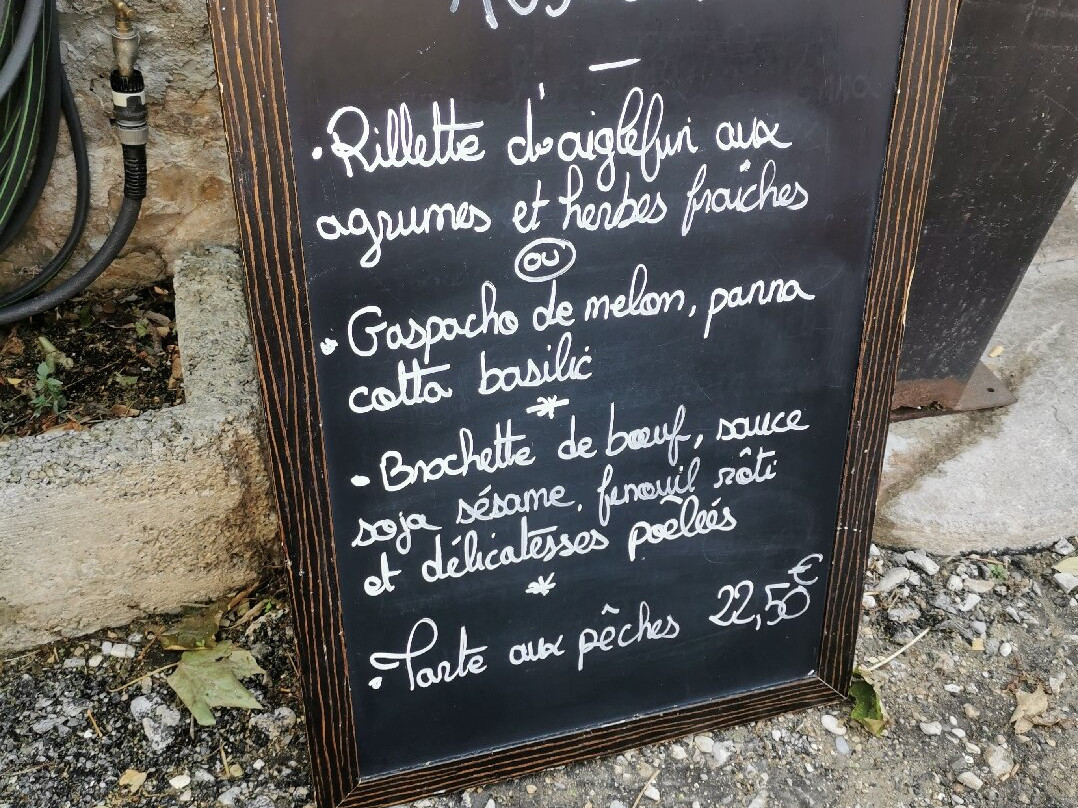 • Rillette d'aiglefin aux
agrumes et herbes fraîches
ou
• Gaspacho de melon, panna
cotta basilic
*
• Brochette de bœuf, sauce
soja sésame, fenouil rôti
et délicatesses poêlées
*
• Tarte aux pêches 22,50€